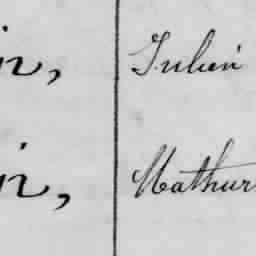 in, Julien
in, Mathur